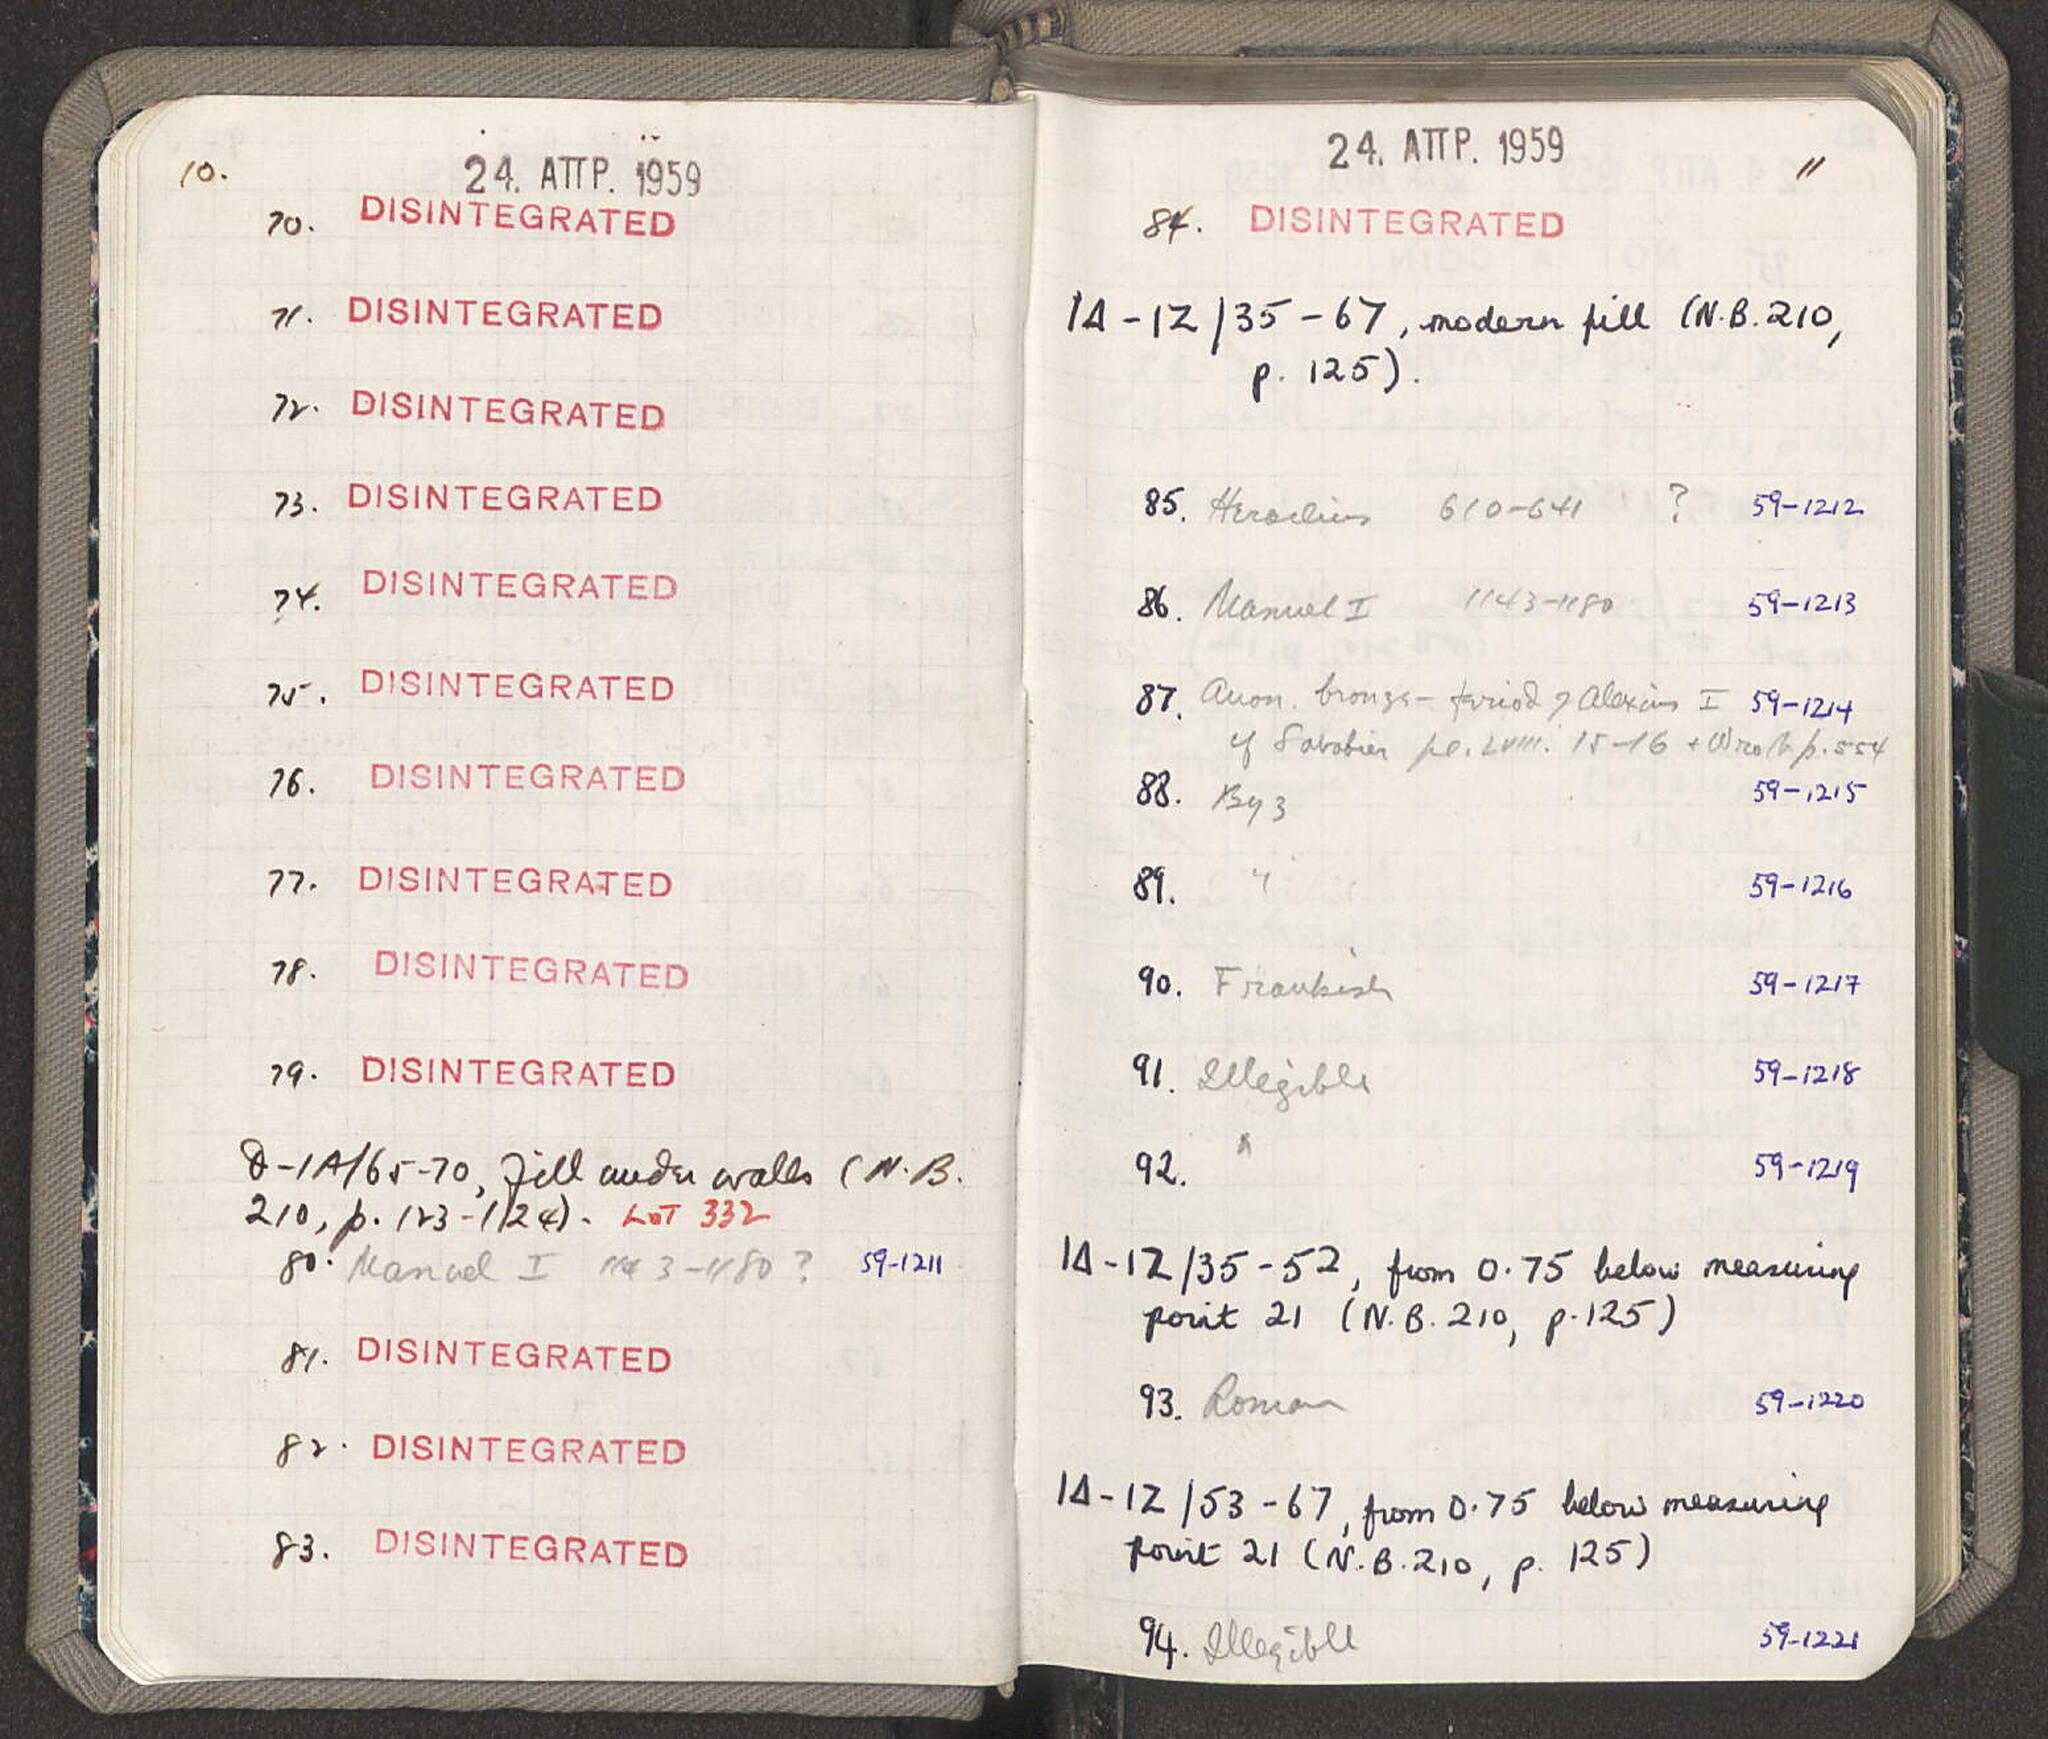 10.
24. ΑΠΡ. 1959
70. DISINTEGRATED
71. DISINTEGRATED
72. DISINTEGRATED
73. DISINTEGRATED
74. DISINTEGRATED
75. DISINTEGRATED
76. DISINTEGRATED
77. DISINTEGRATED
78. DISINTEGRATED
79. DISINTEGRATED
-1A/65-70, fill under walls (N.B.
210, p. 123-124). LOT 332
80. Manuel I 1143-1180? 59-1211
81. DISINTEGRATED
82. DISINTEGRATED
83. DISINTEGRATED
24. ΑΠΡ. 1959
11
84. DISINTEGRATED
1Δ-1Z/35-67, modern fill (N.B. 210,
p. 125).
85. Heraclius 610-641 ? 59-1212
86. Manuel I 1143-1180 59-1213
87. Anon. bronze - period of Alexius I 59-1214
cf Sabatier pl. LVIII. 15-16 + Wroth p. 554
88. Byz 59-1215
89. " 59-1216
90. Frankish 59-1217
91. Illegible 59-1218
92. " 59-1219
1Δ-1Z/35-52, from 0.75 below measuring
point 21 (N.B. 210, p. 125)
93. Roman 59-1220
1Δ-1Z/53-67, from 0.75 below measuring
point 21 (N.B. 210, p. 125)
94. Illegible 59-1221